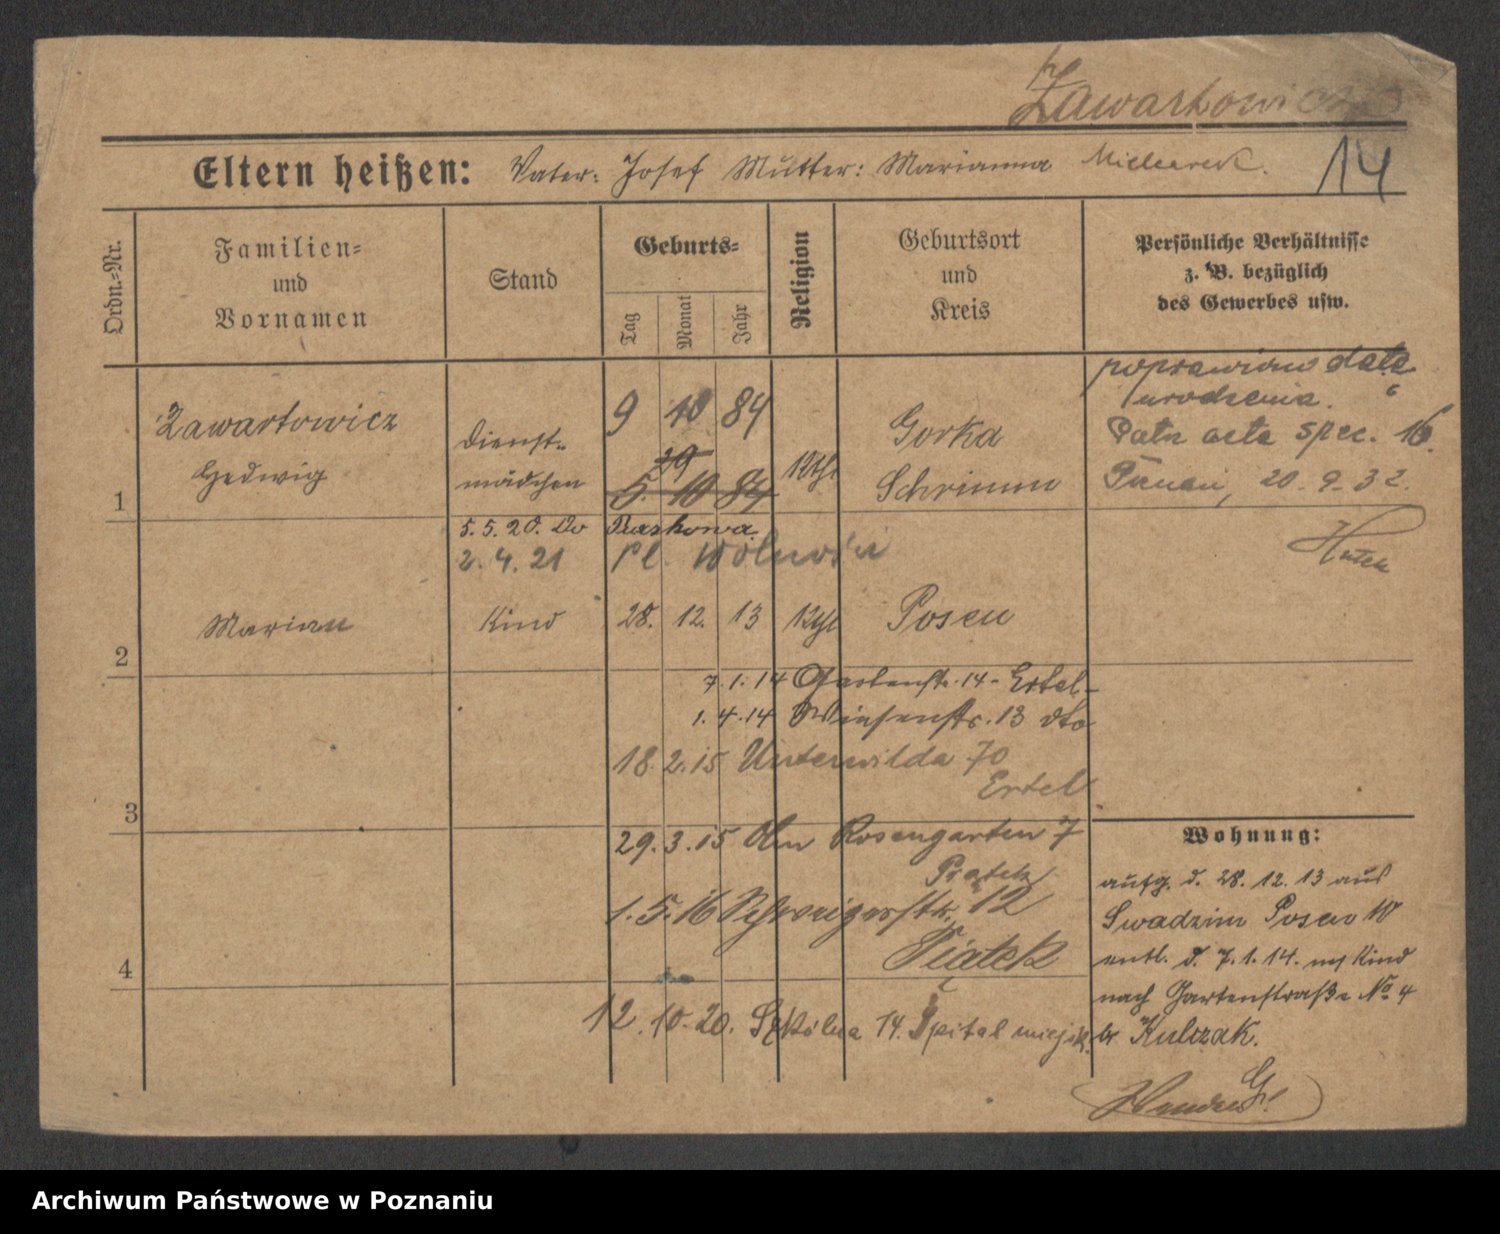 Zawartowicz
Eltern heißen: Vater: Josef Mutter: Marianna Mielcarek.
14
Ordn.-Nr.
Familien-
und
Vornamen
Stand
Geburts-
Tag
Monat
Jahr
Religion
Geburtsort
und
Kreis
Persönliche Verhältnisse
z. B. bezüglich
des Gewerbes usw.
1
Zawartowicz
Hedwig
Dienst-
mädchen
9 10 84
29
5. 10 84
Kthl
Gorka
Schrimm
poprawiono datę
urodzenia.
Patrz acta spec. 16.
20.9.32.
5.5.20. Do
2.4.21 Pl. Wolności
2
Marian
Kind
28. 12. 13
Kthl
Posen
7.1.14 Gartenstr. 14 - Ertel -
1.4.14 Wiesenstr. 13 dto
18.2.15 Unterwilda 70
Ertel
3
29.3.15 Am Rosengarten 7
Piątek
1.5.16 12
Piątek
4
12.10.20. Szkólna 14. Szpital miejsk.
Wohnung:
aufg. d. 28.12.13 aus
Swadzim Posen W
entl. d. 7.1.14. m Kind
nach Gartenstraße No 4
b. Kulczak.
Archiwum Państwowe w Poznaniu